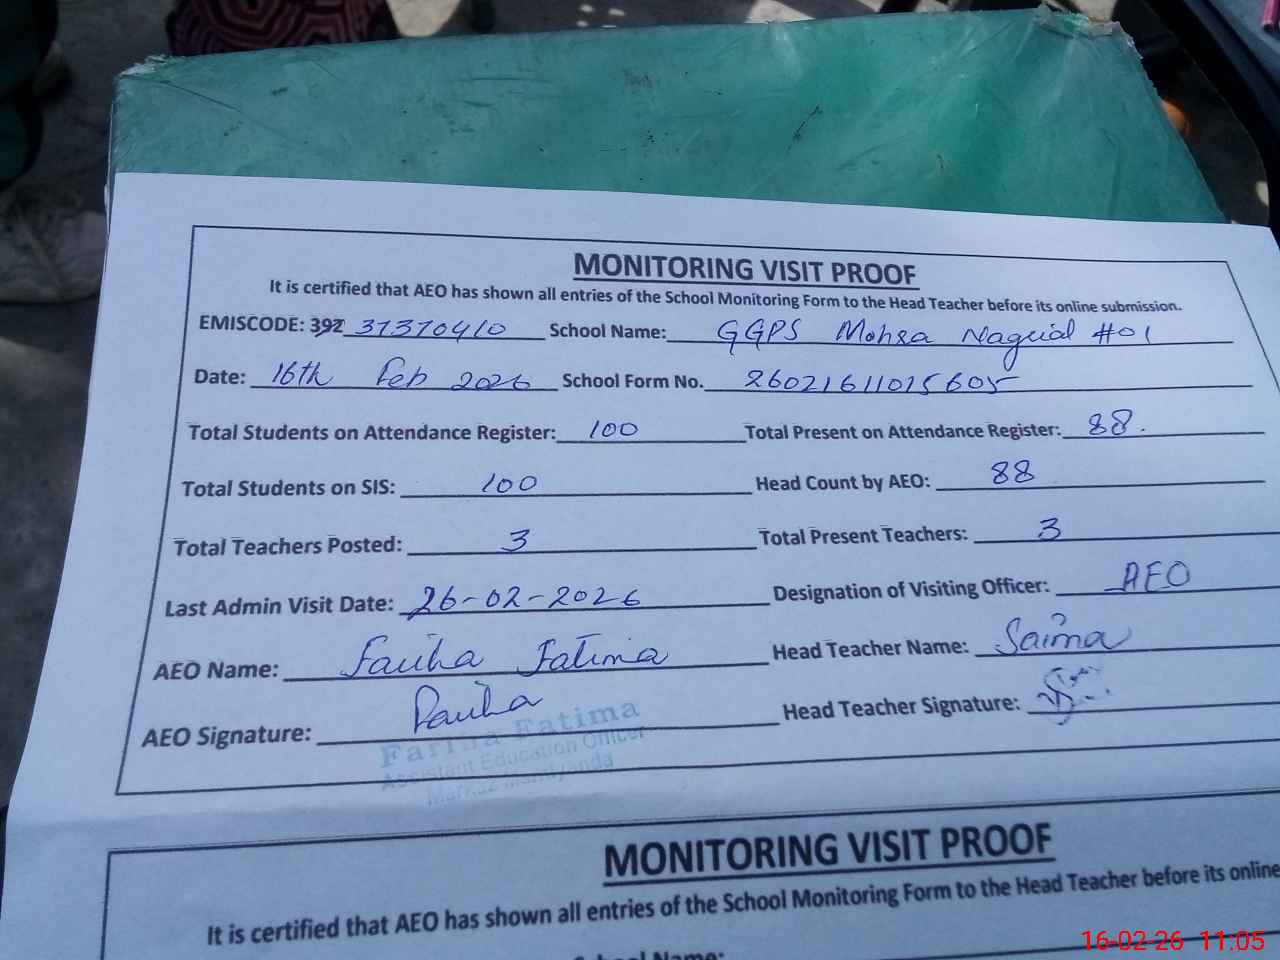 MONITORING VISIT PROOF
It is certified that AEO has shown all entries of the School Monitoring Form to the Head Teacher before its online submission.
EMISCODE: 392 37370410 School Name: GGPS Mohra Nagrial #01
Date: 16th Feb 2026 School Form No. 26021611015605
Total Students on Attendance Register: 100 Total Present on Attendance Register: 88.
Total Students on SIS: 100 Head Count by AEO: 88
Total Teachers Posted: 3 Total Present Teachers: 3
Last Admin Visit Date: 26-02-2026 Designation of Visiting Officer: AEO
AEO Name: Fariha Fatima Head Teacher Name: Saima
AEO Signature: Fariha Head Teacher Signature:
Fariha Fatima
Assistant Education Officer
Markaz
MONITORING VISIT PROOF
It is certified that AEO has shown all entries of the School Monitoring Form to the Head Teacher before its online
School Name:
16-02-26 11:05